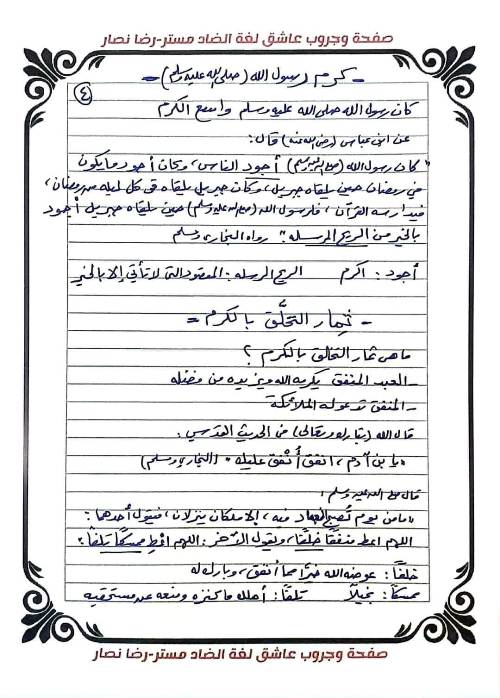 صفحة وجروب عاشق لغة الضاد مستر-رضا نصار
- كرم رسول الله (صلى الله عليه وسلم) -
(٤)
كان رسول الله صلى الله عليه وسلم واسع الكرم
عن ابن عباس (رضى الله عنه) قال:
"كان رسول الله (صلى الله عليه وسلم) أجود الناس، وكان أجود ما يكون
في رمضان حين يلقاه جبريل، وكان جبريل يلقاه فى كل ليله من رمضان،
فيدارسه القرآن، فلرسول الله (صلى الله عليه وسلم) حين يلقاه جبريل أجود
بالخير من الريح المرسله" رواه البخارى ومسلم
أجود: اكرم الريح المرسله: المقصود التى لا تأتي إلا بالخير
- ثمار التخلَّق بالكرم -
ما هى ثمار التخلق بالكرم؟
- العبد المنفق يكرمه الله ويزيده من فضله
- المنفق تدعو له الملائكة
قال الله (تبارك وتعالى) فى الحديث القدسي:
"يا بن آدم، انفق أُنفق عليك" (البخاري ومسلم)
قال صلى الله عليه وسلم:
"ما من يوم تُصبح العباد فيه، إلا ملكان ينزلان، فيقول أحدهما:
اللهم اعط منفقًا خلفًا، ويقول الآخر: اللهم اعْطِ ممسكًا تلفًا"
خلفًا: عوضه الله خيرًا مما أنفق، وبارك له
ممسكًا: بخيلًا تلفًا: أهلك ما كنزه ومنعه عن مستحقيه
صفحة وجروب عاشق لغة الضاد مستر-رضا نصار